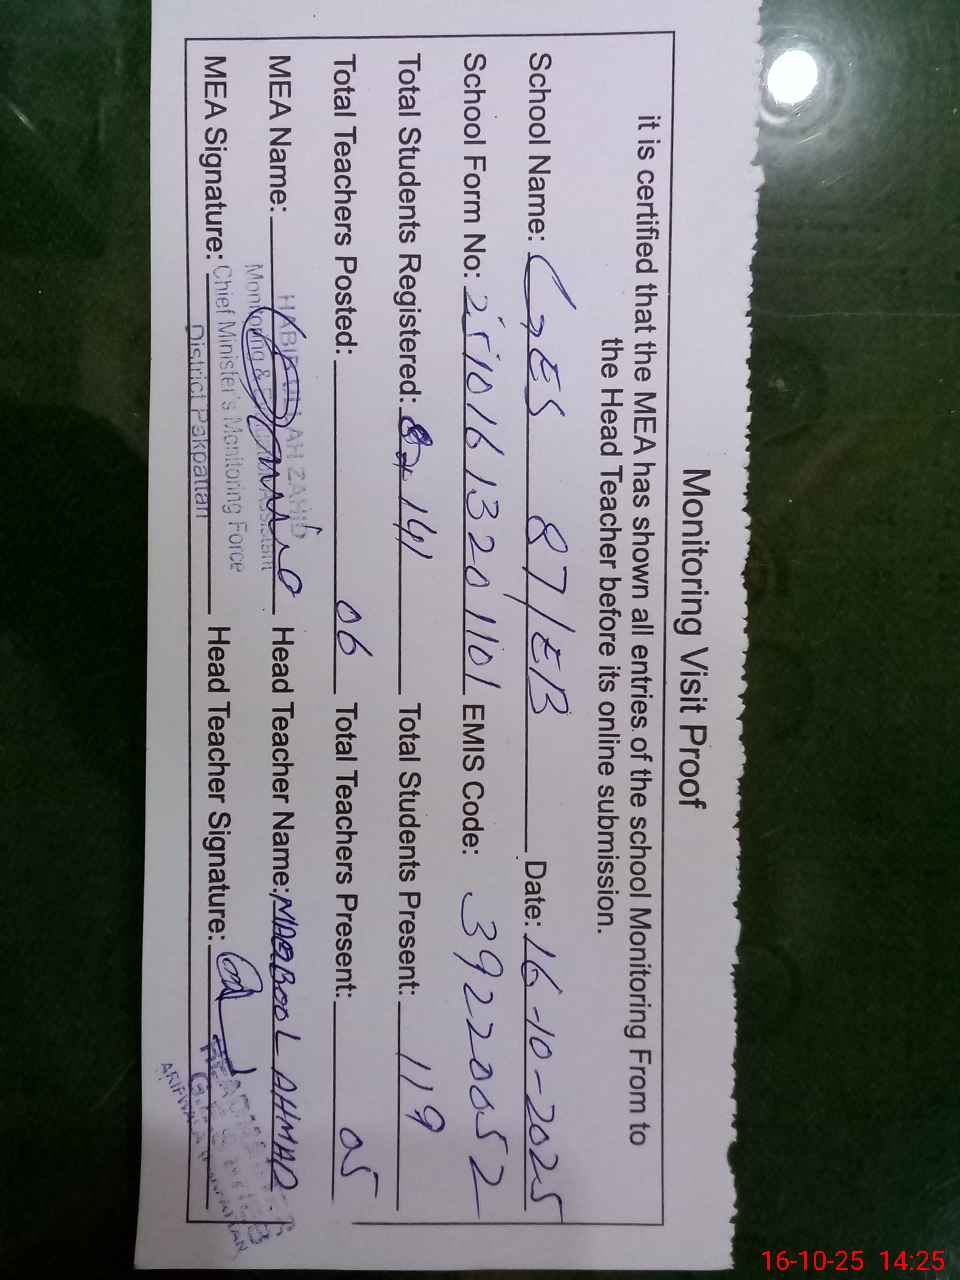 Monitoring Visit Proof
it is certified that the MEA has shown all entries of the school Monitoring From to
the Head Teacher before its online submission.
School Name: GES 87/EB Date: 16-10-2025
School Form No: 25101613201101 EMIS Code: 39220052
Total Students Registered: 141 Total Students Present: 119
Total Teachers Posted: 06 Total Teachers Present: 05
MEA Name: Head Teacher Name: MAQBOOL AHMAD
MEA Signature: Head Teacher Signature:
HABIB ULLAH ZAHID
Monitoring & Assistant
Chief Minister's Monitoring Force
District Pakpattan
16-10-25 14:25